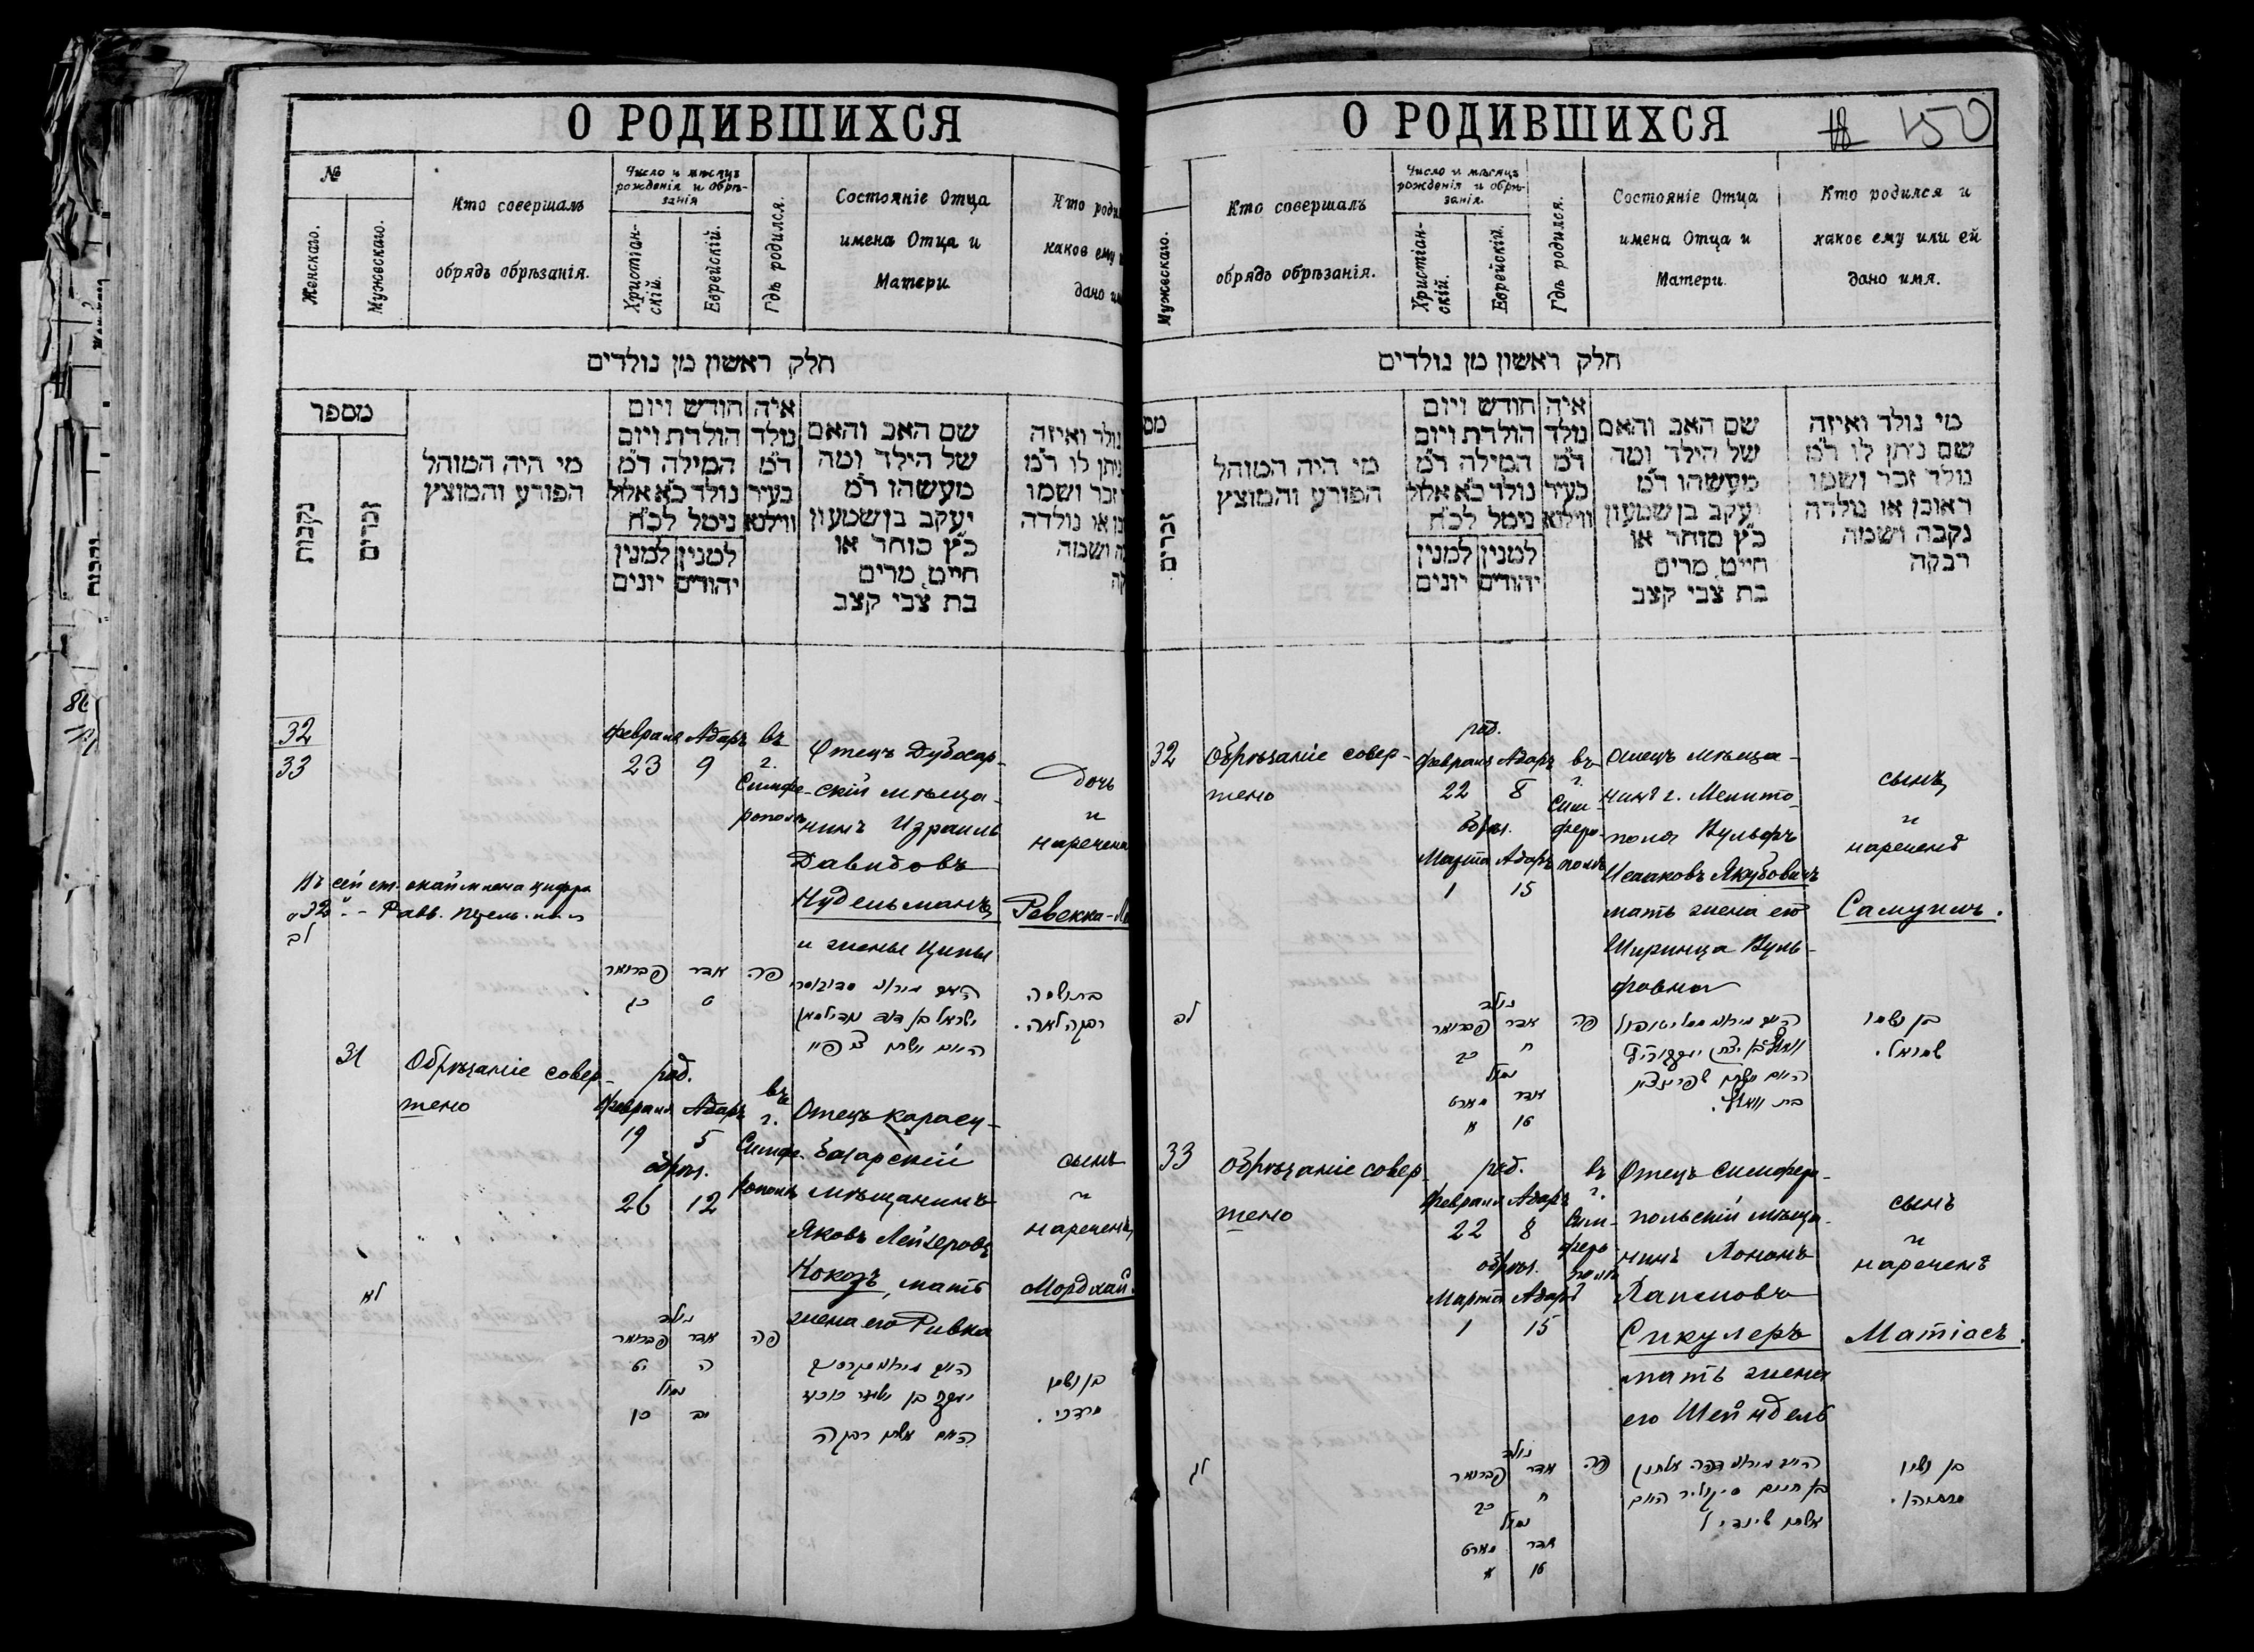 О РОДИВШИХСЯ
№
Женскаго.
Мужескаго.
Кто совершалъ
обрядъ обрѣзанія.
Число и мѣсяцъ
рожденія и обрѣ-
занія
Христіан-
скій.
Еврейскій.
Гдѣ родился.
Состояніе Отца
имена Отца и
Матери
Кто роди
какое ему
дано им
חלק ראשון מן נולדים
מספר
נקבות
זכרים
מי היה המוהל
הפורע והמוצץ
חודש ויום
הולדת ויום
המילה ד״מ
נולד כ״א אלול
ניטל לכ״ח
למנין למנין
יהודים יונים
איה
נולד
ד״מ
בעיר
ווילנא
שם האב והאם
של הילד ומה
מעשהו ד״מ
יעקב בן שמעון
כ״ץ סוחר או
חייט, מרים
בת צבי קצב
נולד ואיזה
ניתן לו ד״מ
זכר ושמו
או נולדה
ושמה
32
33
Февраля Адаръ
23 9
въ
г.
Симфе-
рополь
Отецъ Дубосар-
скій мѣща-
нинъ Израиль
Давидовъ
Нудельманъ
и жены Ципы
дочь
и
наречена
Ревекка-
פברואר אדר פה
כג ט
ישראל בן דוד
רבקה לאה.
לב
31
Обрѣзаніе совер-
шено
род.
Февраля Адаръ
19 5
обрѣз.
26 12
въ
г.
Симфе-
рополь
Отецъ карасу-
базарскій
мѣщанинъ
Яковъ Лейзеровъ
Кокозъ, мать
жена его Ривка
сынъ
и
нареченъ
Мордхай
לא
נולד
פברואר אדר פה
יט ה
נמול
יב
בן ושמו
מרדכי.
О РОДИВШИХСЯ
18 150
Мужескаго.
Кто совершалъ
обрядъ обрѣзанія.
Число и мѣсяцъ
рожденія и обрѣ-
занія.
Христіан-
скій.
Еврейскій.
Гдѣ родился.
Состояніе Отца
имена Отца и
Матери.
Кто родился и
какое ему или ей
дано имя.
חלק ראשון מן נולדים
מס
זכרים
מי היה המוהל
הפורע והמוצץ
חודש ויום
הולדת ויום
המילה ד״מ
נולד כ״א אלול
ניטל לכ״ח
למנין למנין
יהודים יונים
איה
נולד
ד״מ
בעיר
ווילנא
שם האב והאם
של הילד ומה
מעשהו ד״מ
יעקב בן שמעון
כ״ץ סוחר או
חייט, מרים
בת צבי קצב
מי נולד ואיזה
שם ניתן לו ד״מ
נולד זכר ושמו
ראובן או נולדה
נקבה ושמה
רבקה
32
Обрѣзаніе совер-
шено
род.
Февраля Адаръ
22 8
обрѣз.
Марта Адаръ
1 15
въ
г.
Сим-
феро-
полѣ
Отецъ мѣща-
нинъ г. Мелито-
поля Вульфъ
Исааковъ Якубовичъ
мать жена его
Ширинца Вуль-
фовна
сынъ
и
нареченъ
Самуилъ.
לב
נולד
פברואר אדר פה
כב ח
נמול
מארט אדר
א טו
בן ושמו
שמואל.
33
Обрѣзаніе совер-
шено
род.
Февраля Адаръ
22 8
обрѣз.
Марта Адаръ
1 15
въ
г.
Сим-
феро-
полѣ
Отецъ Симферо-
польскій мѣща-
нинъ
Сикулеръ
мать жена
его Шейндель
сынъ
и
нареченъ
Матіасъ.
לג
נולד
פברואר אדר פה
כב ח
נמול
מארט אדר
א טו
בן ושמו
מתתיהו.